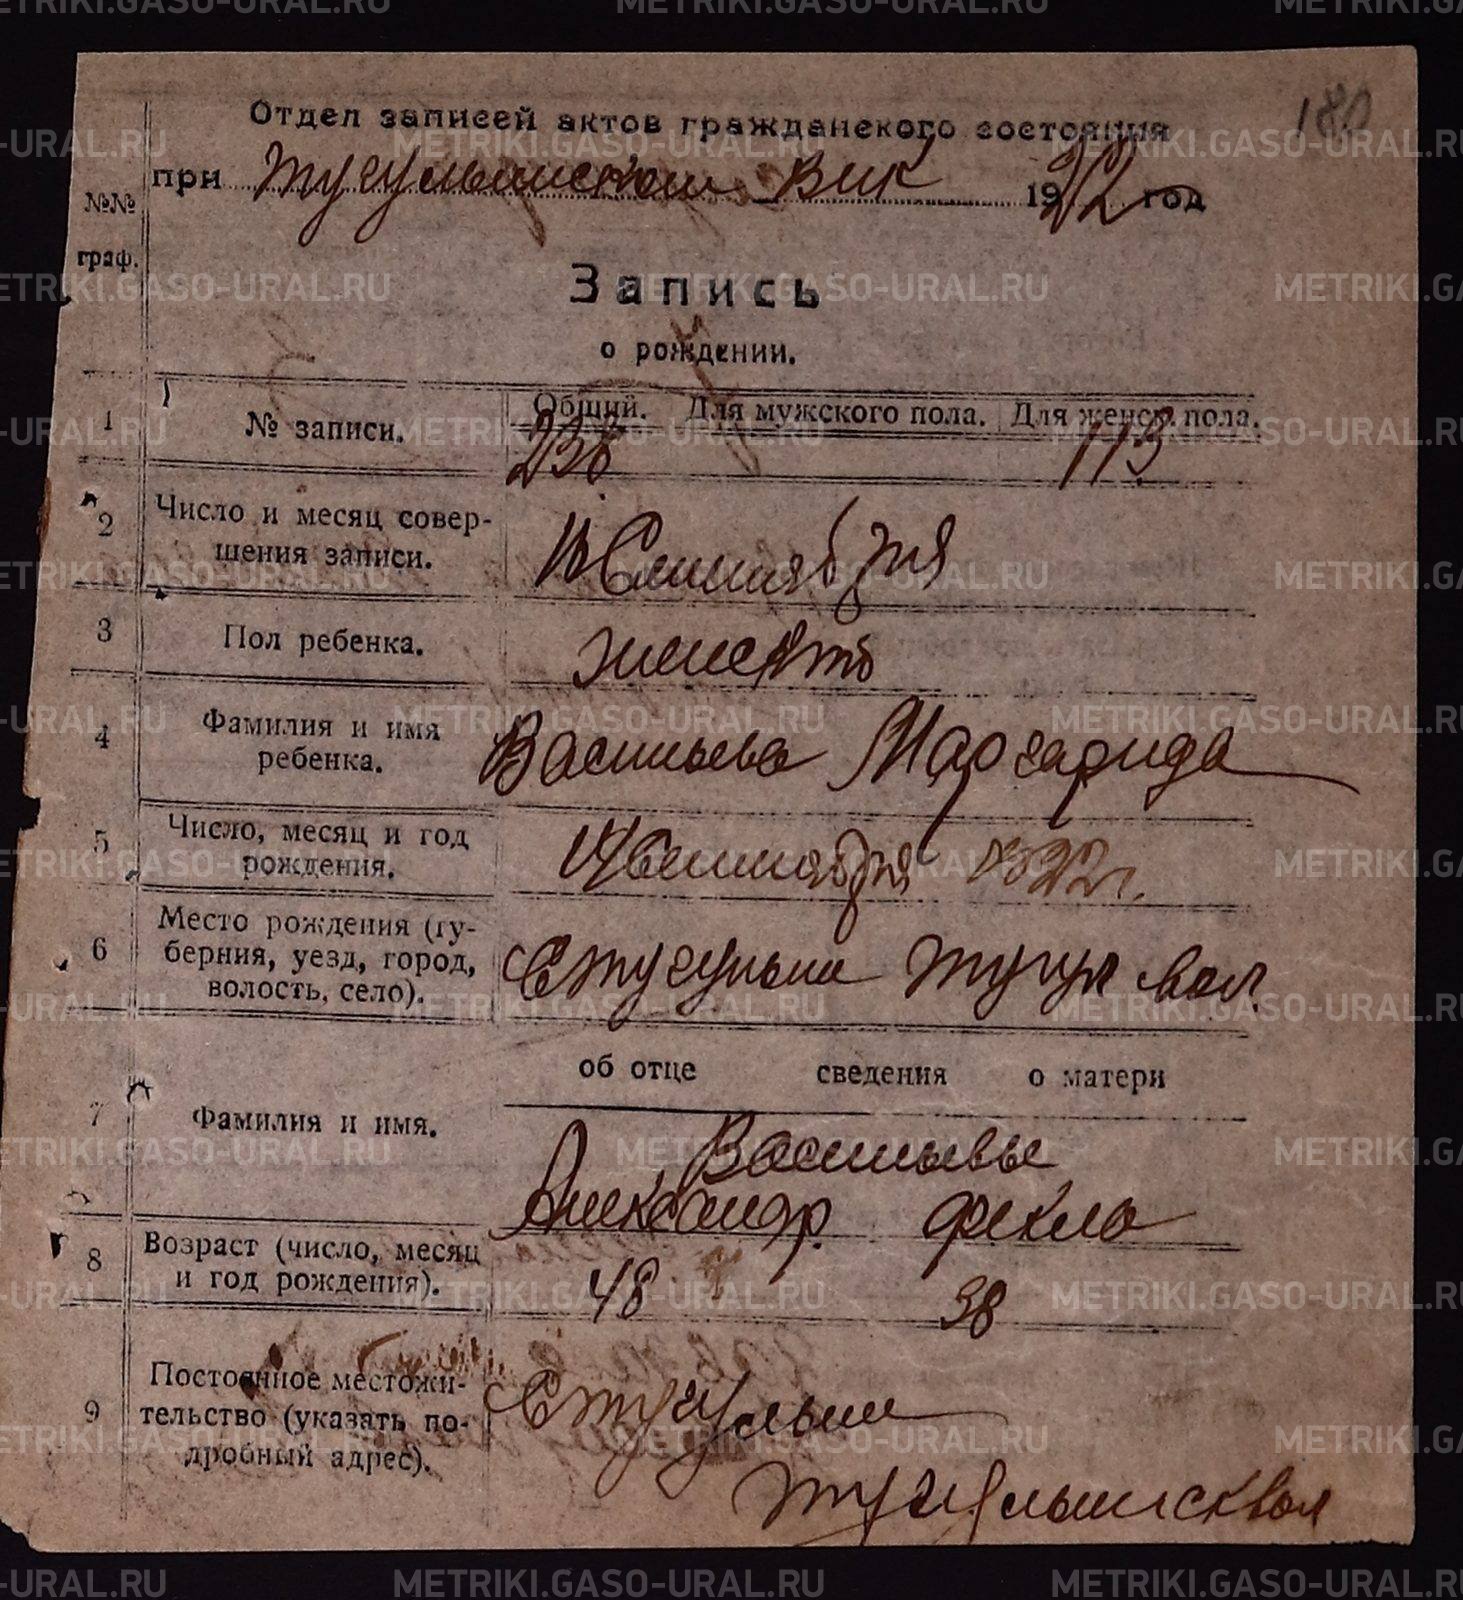 180
Отдел записей актов гражданского состояния
при Тугулымском Вик 1922 год
№№
граф.
Запись
о рождении.
Общий. Для мужского пола. Для женск. пола.
1 № записи. 238 113
2 Число и месяц совер-
шения записи. Сентября
3 Пол ребенка.
4 Фамилия и имя
ребенка. Васильева Маргарида
5 Число, месяц и год
рождения. 14 Сентября 1922 г.
6 Место рождения (гу-
берния, уезд, город,
волость, село). С Тугулым Тугул вол.
об отце сведения о матери
7 Фамилия и имя.
Васильевы
Александр Фекла
8 Возраст (число, месяц
и год рождения). 48 38
9 Постоянное местожи-
тельство (указать по-
дробный адрес). С Тугулым
Тугулымск вол
METRIKI.GASO-URAL.RU